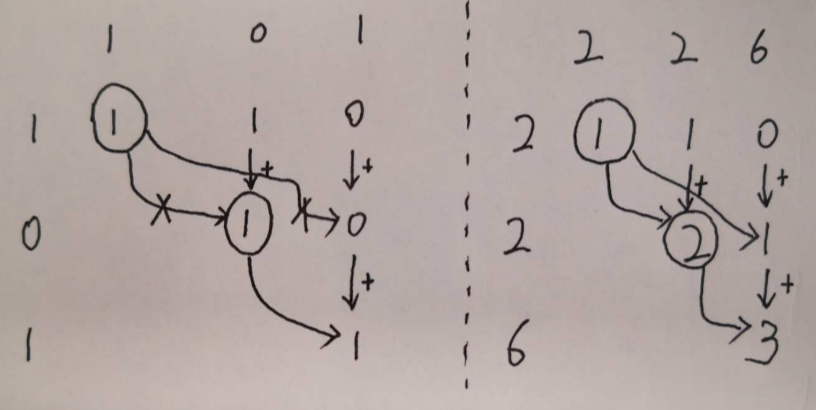 1 0 1
1 1 1 0
+ +
0 1 0
+
1 1
2 2 6
2 1 1 0
+ +
2 2 1
+
6 3